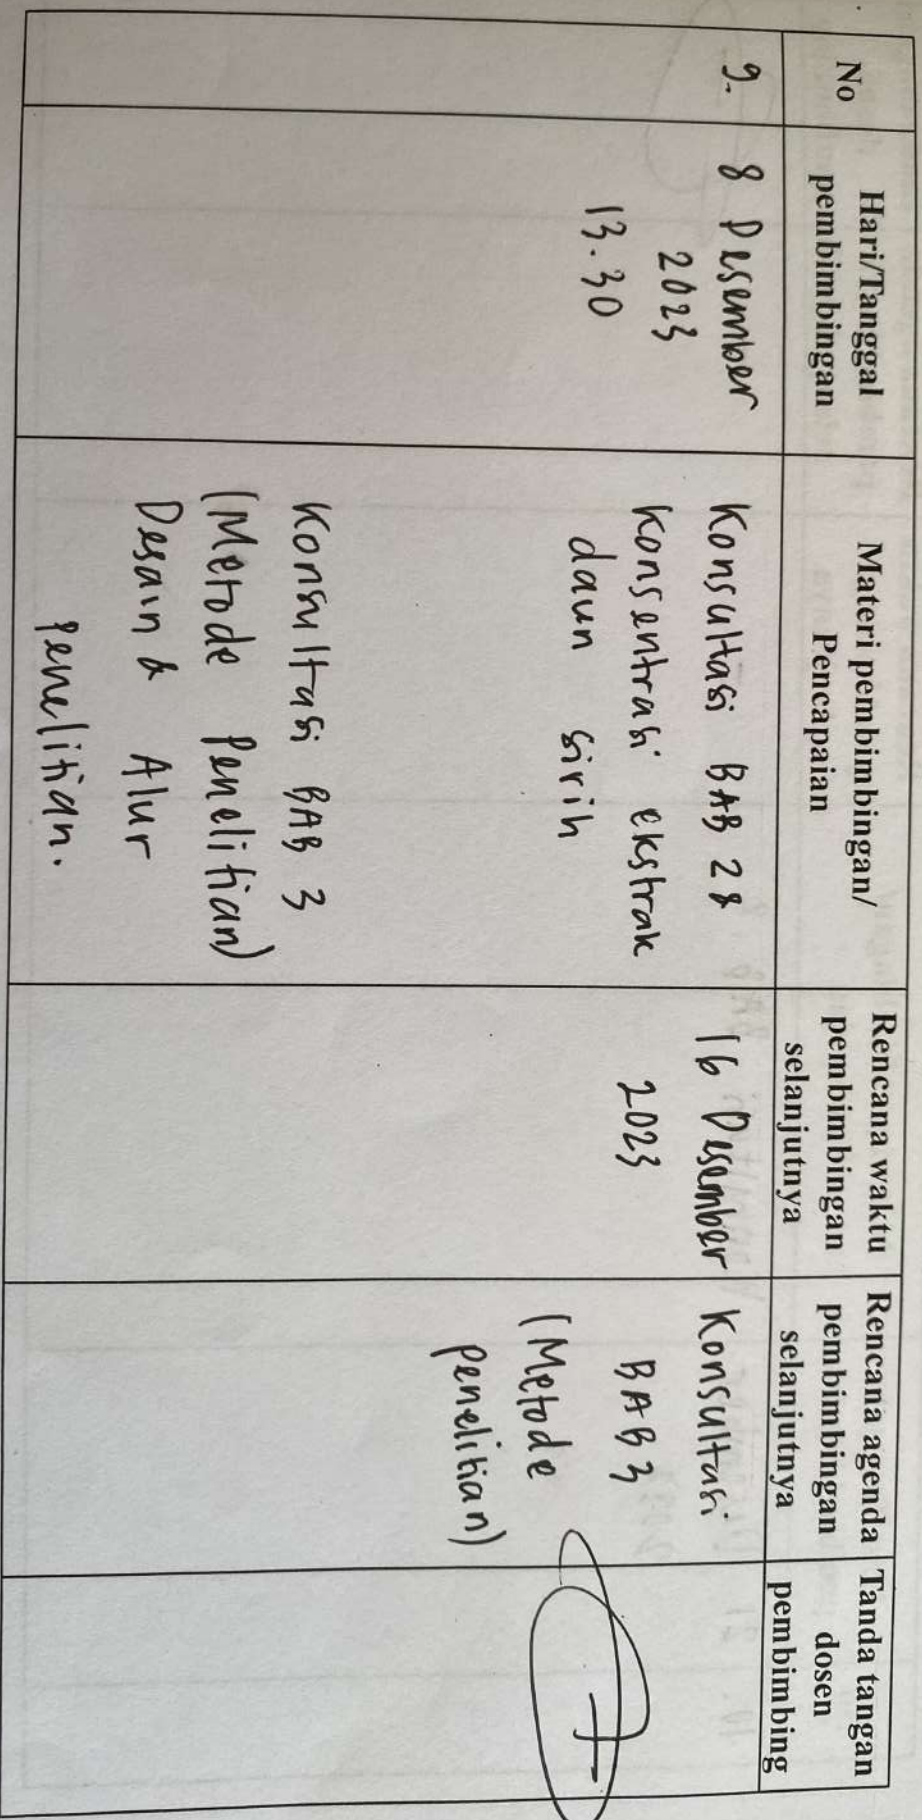 No
Hari/Tanggal
pembimbingan
Materi pembimbingan/
Pencapaian
Rencana waktu
pembimbingan
selanjutnya
Rencana agenda
pembimbingan
selanjutnya
Tanda tangan
dosen
pembimbing
9.
8 Desember
2023
13.30
Konsultasi BAB 2 &
Konsentrasi ekstrak
daun sirih
Konsultasi BAB 3
(Metode Penelitian)
Desain & Alur
Penelitian.
16 Desember
2023
Konsultasi
BAB 3
(Metode
Penelitian)